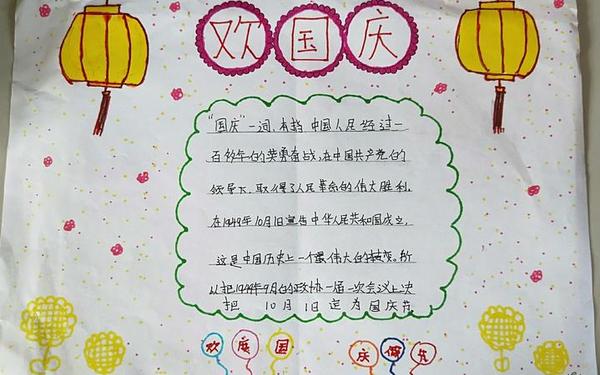 欢国庆
"国庆"一词,本指中国人民经过一
百多年的英勇奋战,在中国共产党的
领导下,取得了人民革命的伟大胜利。
在1949年10月1日宣告中华人民共和国成立,
这是中国历史上一个最伟大的转变。所
以把1949年9月的政协一届一次会议上决
把 10月1日 定为国庆节
欢度国
庆佳节